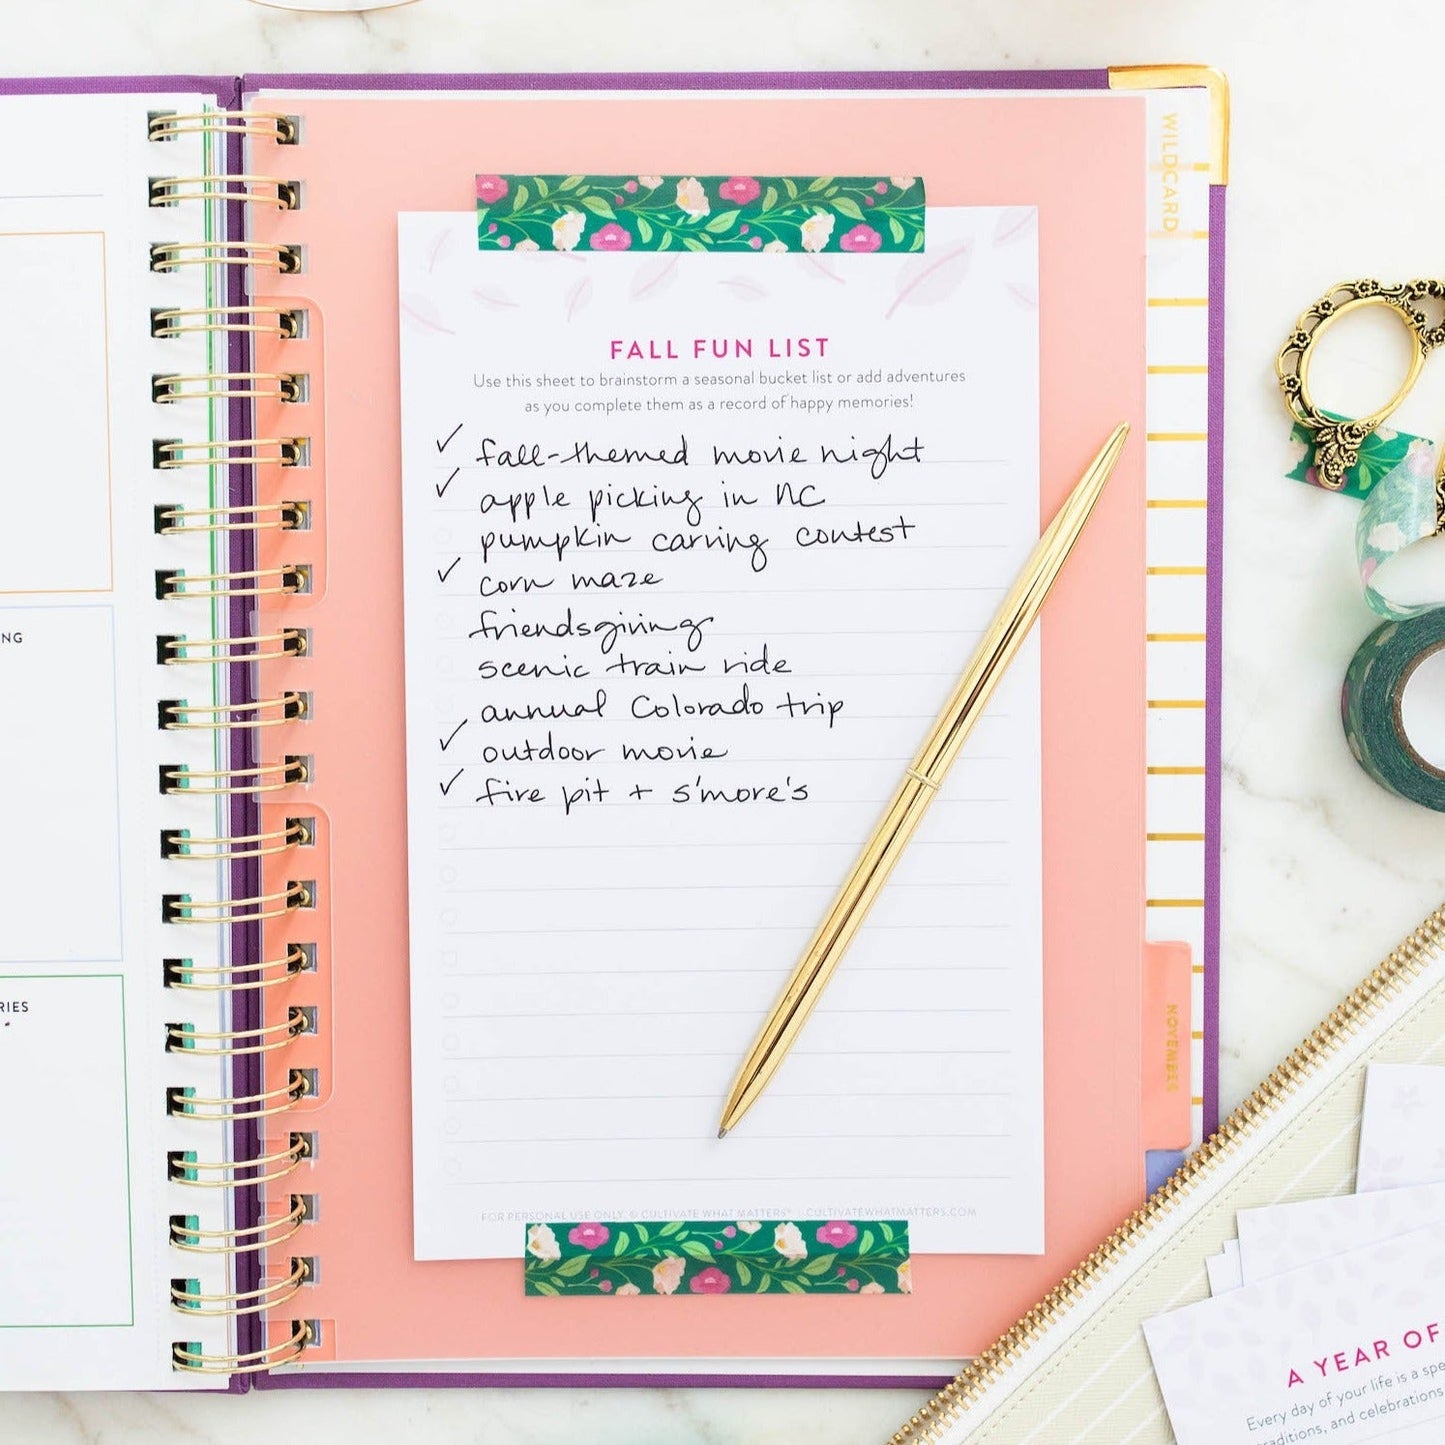 WILDCARD
FALL FUN LIST
Use this sheet to brainstorm a seasonal bucket list or add adventures
as you complete them as a record of happy memories!
✓ fall-themed movie night
✓ apple picking in NC
pumpkin carving contest
✓ corn maze
friendsgiving
scenic train ride
annual Colorado trip
✓ outdoor movie
✓ fire pit + s'more's
FOR PERSONAL USE ONLY. © CULTIVATE WHAT MATTERS® | CULTIVATEWHATMATTERS.COM
NG
RIES
NOVEMBER
A YEAR OF
Every day of your life is a spe
aditions, and celebrations